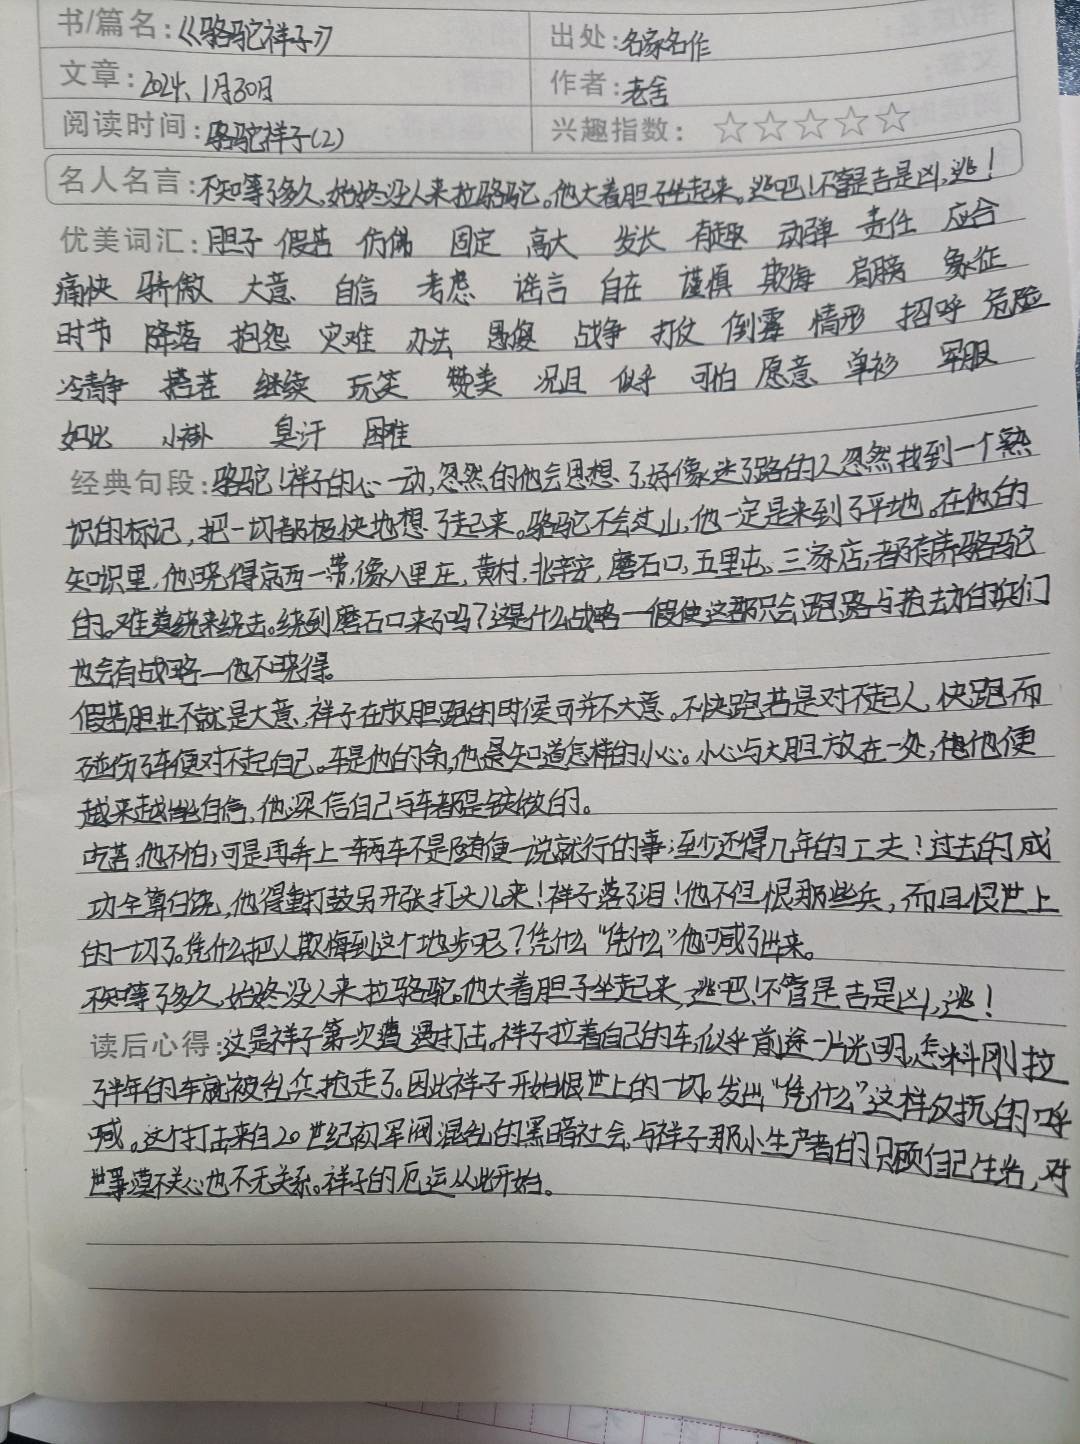 书/篇名：《骆驼祥子》 出处：名家名作
文章：2024、1月30日 作者：老舍
阅读时间：骆驼祥子(2) 兴趣指数：☆☆☆☆☆
名人名言：不知等了多久，始终没人来拉骆驼。他大着胆子坐起来。逃吧！不管是吉是凶，逃！
优美词汇：胆子 假若 仿佛 固定 高大 发长 有趣 动弹 责任 应合
痛快 骄傲 大意 自信 考虑 谣言 自在 谨慎 欺侮 肩膀 象征
时节 降落 抱怨 灾难 办法 愚傻 战争 打仗 倒霉 情形 招呼 危险
冷静 搭茬 继续 玩笑 赞美 况且 似乎 可怕 愿意 单衫 军服
如此 小褂 臭汗 困难
经典句段：骆驼！祥子的心一动，忽然的他会思想了好像迷了路的人忽然找到一个熟
识的标记，把一切都极快地想了起来。骆驼不会过山，他一定是来到了平地。在他的
知识里，他晓得京西一带，像八里庄，黄村，北辛安，磨石口，五里屯、三家店，都有养骆驼
的。难道绕来绕去。绕到磨石口来了吗？这是什么战略一假使这都只会跑路与抢去劫的兵们
也会有战略一他不晓得。
假若胆壮不就是大意，祥子在放胆跑的时候可并不大意。不快跑若是对不起人，快跑而
碰伤了车便对不起自己。车是他的命，他是知道怎样的小心。小心与大胆放在一处，他便
越来越自信，他深信自己与车都是铁做的。
吃苦，他不怕；可是再弄上一辆车不是随便一说就行的事；至少还得几年的工夫！过去的成
功全算白饶，他得重打鼓另开张打头儿来！祥子落了泪！他不但恨那些兵，而且恨世上
的一切了。凭什么把人欺侮到这个地步呢？凭什么“凭什么”他喊了出来。
不知等了多久，始终没人来拉骆驼。他大着胆子坐起来，逃吧！不管是吉是凶，逃！
读后心得：这是祥子第一次遭遇打击。祥子拉着自己的车，似乎前途一片光明，怎料刚拉
了半年的车就被乱兵抢走了。因此祥子开始恨世上的一切。发出“凭什么”这样反抗的呼
喊。这个打击来自20世纪初军阀混乱的黑暗社会，与祥子那小生产者的只顾自己生活，对
世事漠不关心也不无关系。祥子的厄运从此开始。